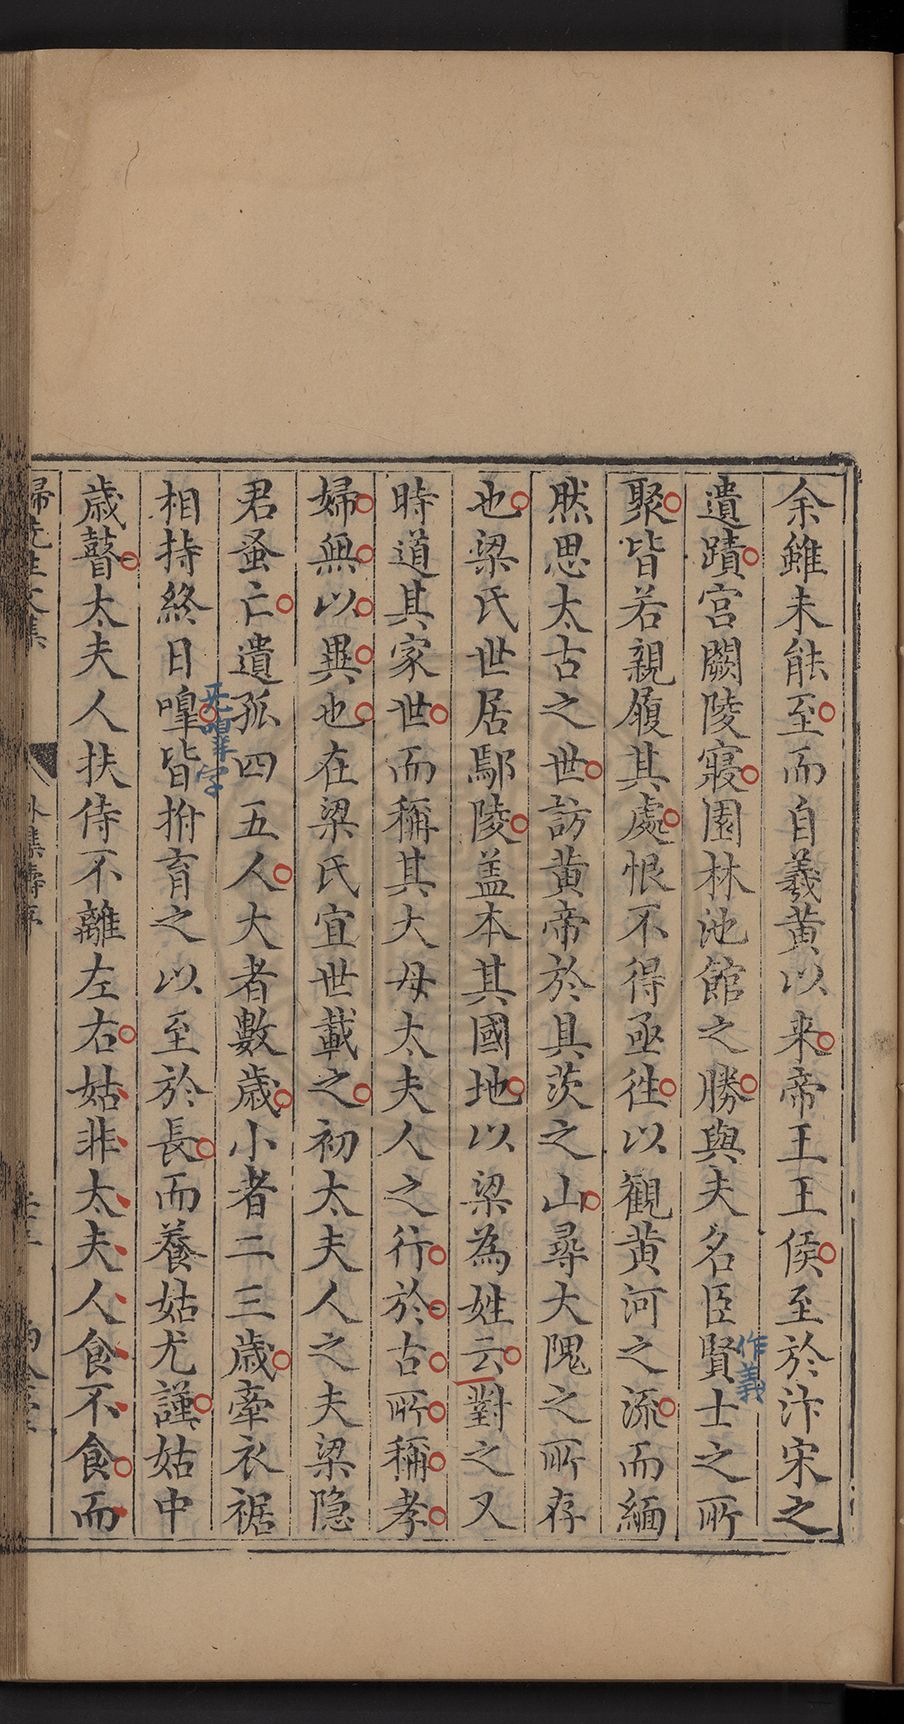 余雖未能至而自羲黄以来帝王王侯至於汴宋之
遺蹟宫闕陵寢園林池館之勝與夫名臣賢士之所
作義
聚皆若親履其處恨不得亟徃以觀黄河之流而緬
然思太古之世訪黄帝於具茨之山尋大隗之所存
也梁氏世居鄢陵盖本其國地以梁為姓云對之又
時道其家世而稱其大母太夫人之行於古所稱孝
婦無以異也在梁氏宜世載之初太夫人之夫梁隐
君蚤亡遺孤四五人大者數歳小者二三歳牽衣裾
相持終日喤皆拊育之以至於長而養姑尤謹姑中
歳瞽太夫人扶侍不離左右姑非太夫人食不食而
外集壽序